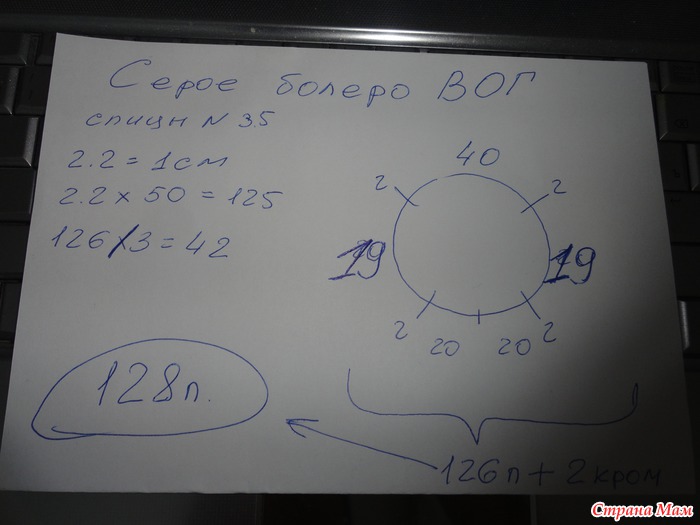 Серое болеро ВОГ
спицы N 3.5
2.2 = 1см
2.2 x 50 = 125
126/3 = 42
40
2 2
19 19
2 2
20 20
128п.
126п + 2 кром
Страна Мам